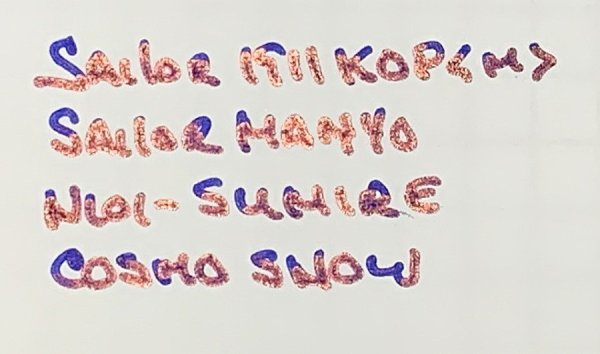 SAILOR 1911 KOP<M>
SAILOR MANYO
NIOI-SUMIRE
COSMO SNOW